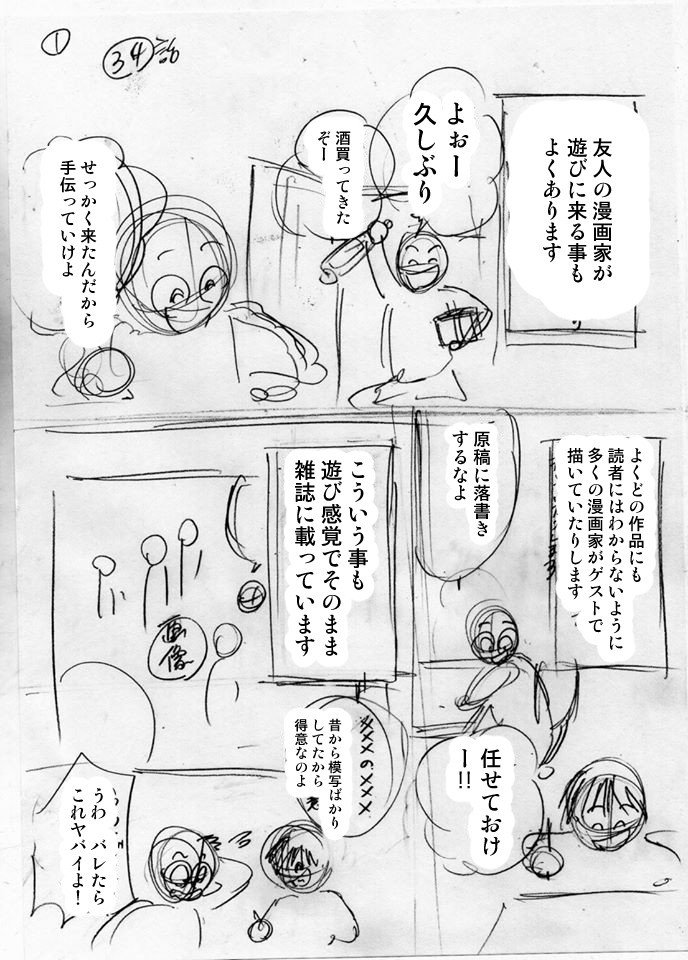 ①
㉞話
友人の漫画家が
遊びに来る事も
よくあります
よぉー
久しぶり
酒買ってきた
ぞー
せっかく来たんだから
手伝っていけよ
よくどの作品にも
読者にはわからないように
多くの漫画家がゲストで
描いていたりします
原稿に落書き
するなよ
任せておけ
ー!!
こういう事も
遊び感覚でそのまま
雑誌に載っています
画像
×××の×××
昔から模写ばかり
してたから
得意なのよ
うわ バレたら
これヤバイよ!